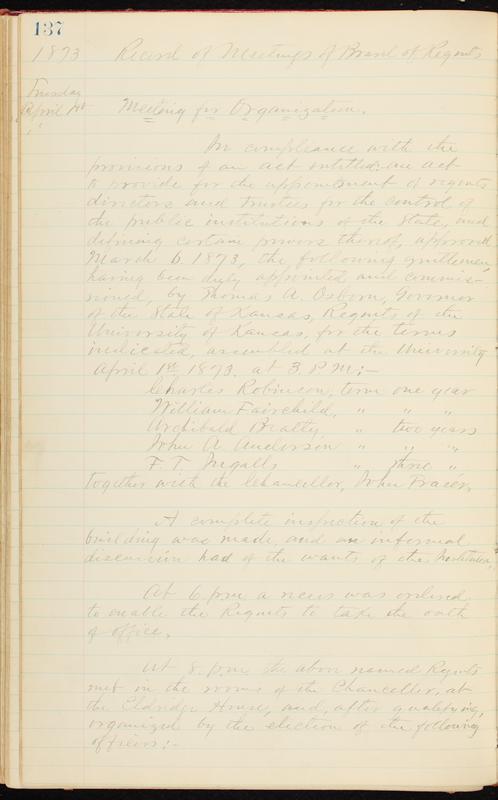 137
1873 Record of Meetings of Board of Regents
Tuesday
April 1st
Meeting for Organization.
In compliance with the
provisions of an act entitled: an act
to provide for the appointment of regents
directors and trustees for the control of
the public institutions of the State, and
defining certain powers thereof, approved
March 6 1873, the following gentlemen,
having been duly appointed and commis-
sioned, by Thomas A. Osborn, Governor
of the State of Kansas, Regents of the
University of Kansas, for the terms
indicated, assembled at the University
April 1st 1873. at 3 P.M:-
Charles Robinson, term one year
William Fairchild, " " "
Archibald Beatty, " two years
John A. Anderson " " "
F. T. Ingalls " three "
together with the Chancellor, John Fraser.
A complete inspection of the
building was made, and an informal
discussion had of the wants of the Institution.
At 6 p.m a recess was ordered
to enable the Regents to take the oath
of office.
At 8. p.m. the above named Regents
met in the rooms of the Chancellor, at
the Eldridge House, and, after qualifying,
organized by the election of the following
officers:-